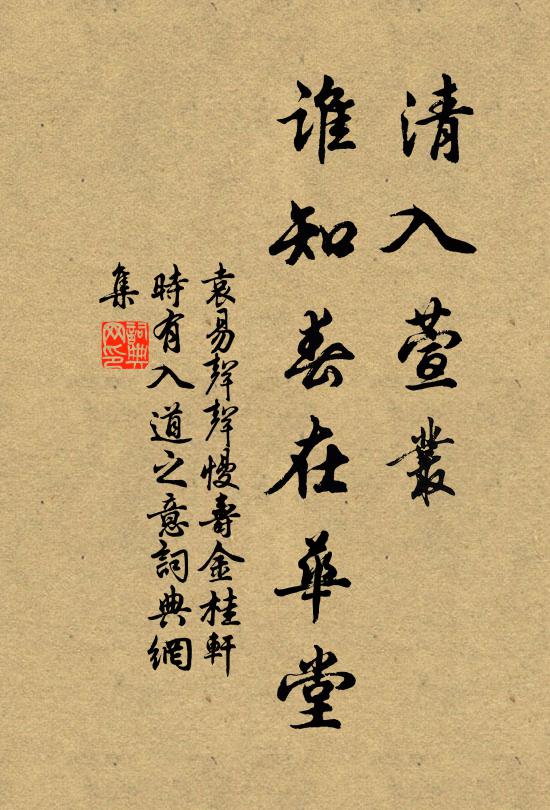 清入萱叢
誰知春在華堂
袁易聲聲慢壽金桂軒
時有入道之意詞典網
集
詞典
网印